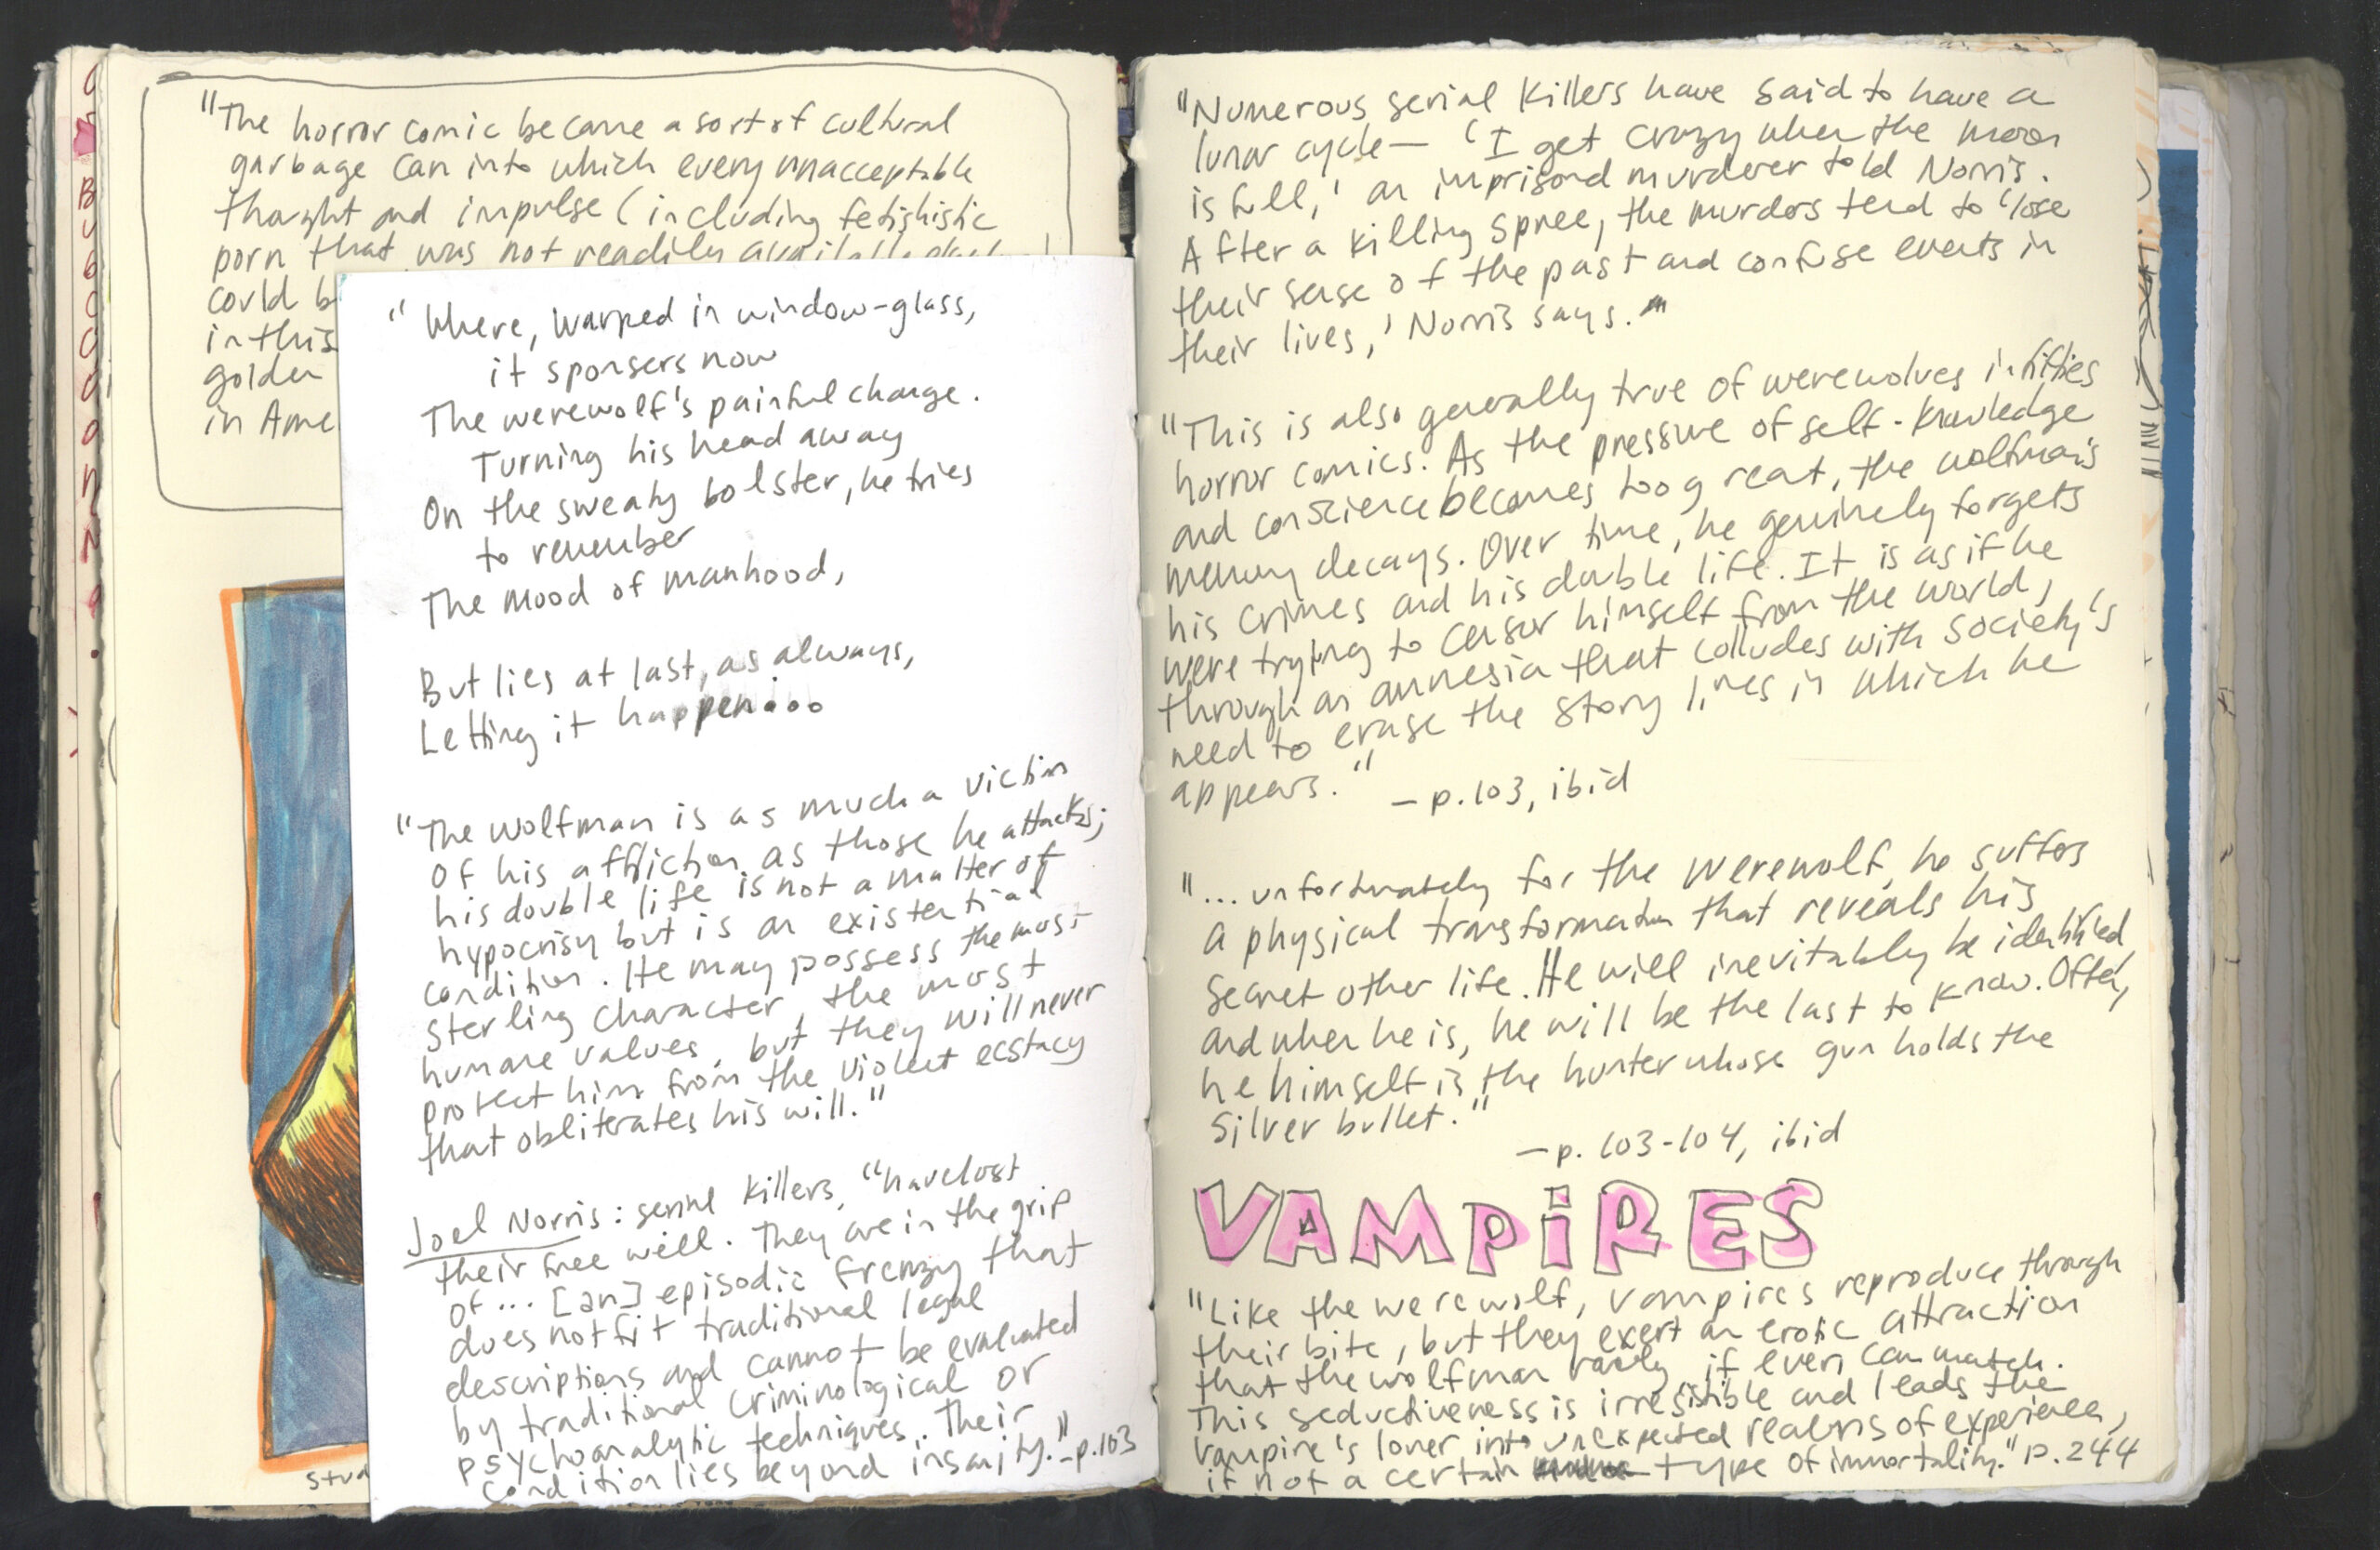 "The horror comic became a sort of cultural
garbage can into which every unacceptable
thought and impulse (including fetishistic
porn that was not readily available
could b
in this
golden
in Ame
" Where, warped in window-glass,
it sponsers now
The werewolf's painful change.
Turning his head away
On the sweaty bolster, he tries
to remember
The mood of manhood,
But lies at last, as always,
Letting it happen...
"The wolfman is as much a victim
of his affliction as those he attacks;
his double life is not a matter of
hypocrisy but is an existential
condition. He may possess the most
sterling character, the most
humane values, but they will never
protect him from the violent ecstacy
that obliterates his will."
Joel Norris: serial killers, "have lost
their free will. They are in the grip
of... [an] episodic frenzy that
does not fit traditional legal
descriptions and cannot be evaluated
by traditional criminological or
psychoanalytic techniques. Their
condition lies beyond insanity." -p.103
stud
"Numerous serial killers have said to have a
lunar cycle — 'I get crazy when the moon
is full,' an imprisond murderer told Norris.
After a killing spree, the murders tend to 'lose
their sense of the past and confuse events in
their lives,' Norris says."
"This is also generally true of werewolves in fifties
horror comics. As the pressure of self-knowledge
and conscience becomes too great, the wolfman's
memory decays. Over time, he genuinely forgets
his crimes and his double life. It is as if he
were trying to censor himself from the world,
through an amnesia that colludes with society's
need to erase the story lines in which he
appears."
— p.103, ibid
"... unfortunately for the werewolf, he suffers
a physical transformation that reveals his
secret other life. He will inevitably be identified,
and when he is, he will be the last to know. Often,
he himself is the hunter whose gun holds the
silver bullet."
— p. 103-104, ibid
VAMPiRES
"Like the werewolf, vampires reproduce through
their bite, but they exert an erotic attraction
that the wolfman rarely if ever can match.
This seductiveness is irresistible and leads the
vampire's lover into unexpected realms of experience,
if not a certain type of immortality." p.244
B
u
b